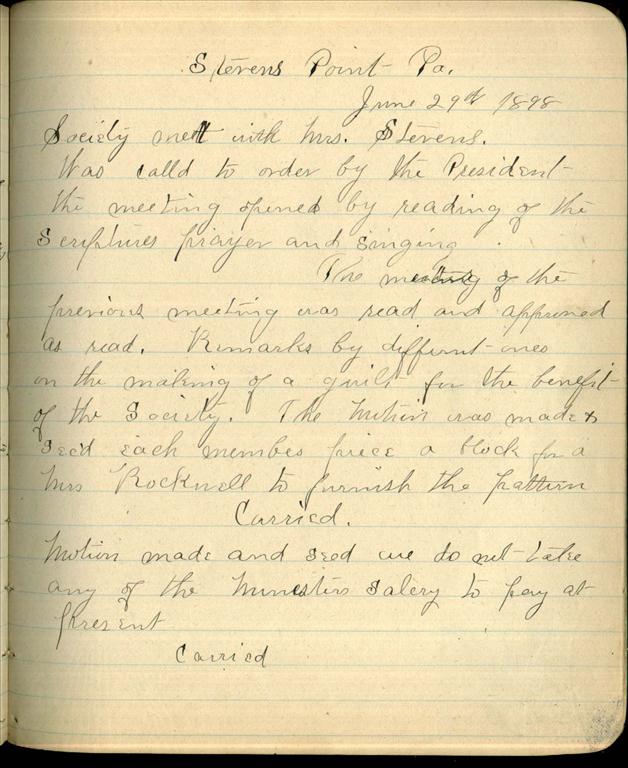 Stevens Point Pa.
June 29th 1898
Society mett with Mrs. Stevens.
Was calld to order by the President
the meeting opened by reading of the
Scriptures prayer and singing.
The of the
previous meeting was read and approved
as read. Remarks by differnt ones
on the making of a quilt for the benefit
of the Society. The Motion was made &
Sec'd each member piece a block for a
Mrs Rockwell to furnish the pattern
Carried.
Motion made and secd we do not take
any of the Ministers Salery to pay at
present
Carried